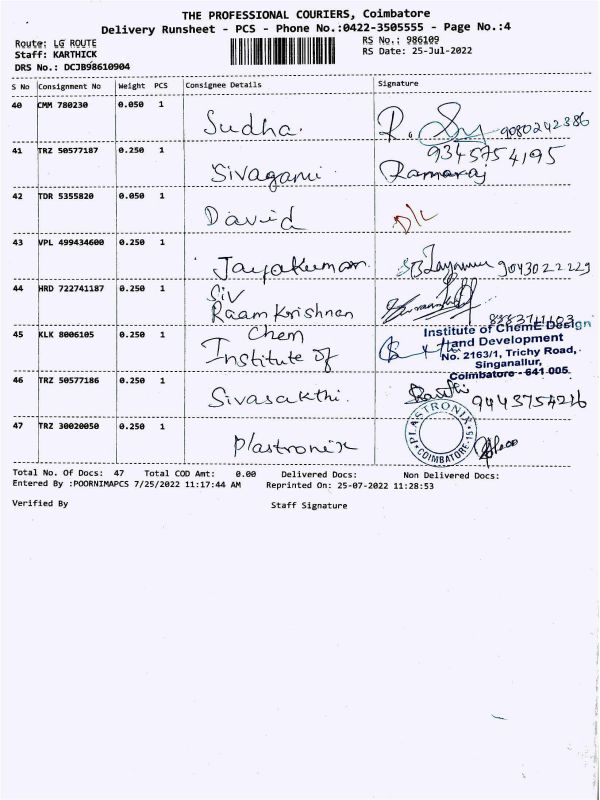 THE PROFESSIONAL COURIERS, Coimbatore
Delivery Runsheet - PCS - Phone No.:0422-3505555 - Page No.:4
Route: LG ROUTE
RS No.: 986109
Staff: KARTHICK
RS Date: 25-Jul-2022
DRS No.: DCJB98610904
S No Consignment No Weight PCS Consignee Details Signature
40 CMM 780230 0.050 1
Sudha. 9080242386
41 TRZ 50577187 0.250 1 9345754195
Sivagami Ramaraj
42 TDR 5355820 0.050 1
David D/L
43 VPL 499434600 0.250 1
Jayakumar 9043022229
44 HRD 722741187 0.250 1
Siv
Raam Krishnan
45 KLK 8006105 0.250 1
Chem
Institute of
Institute of ChemE Design
and Development
No. 2163/1, Trichy Road,
Singanallur,
Coimbatore - 641 005
46 TRZ 50577186 0.250 1
Sivasakthi.
47 TRZ 30020050 0.250 1
Plastronix
PLASTRONIX
COIMBATORE-15
Total No. Of Docs: 47 Total COD Amt: 0.00 Delivered Docs: Non Delivered Docs:
Entered By :POORNIMAPCS 7/25/2022 11:17:44 AM Reprinted On: 25-07-2022 11:28:53
Verified By Staff Signature